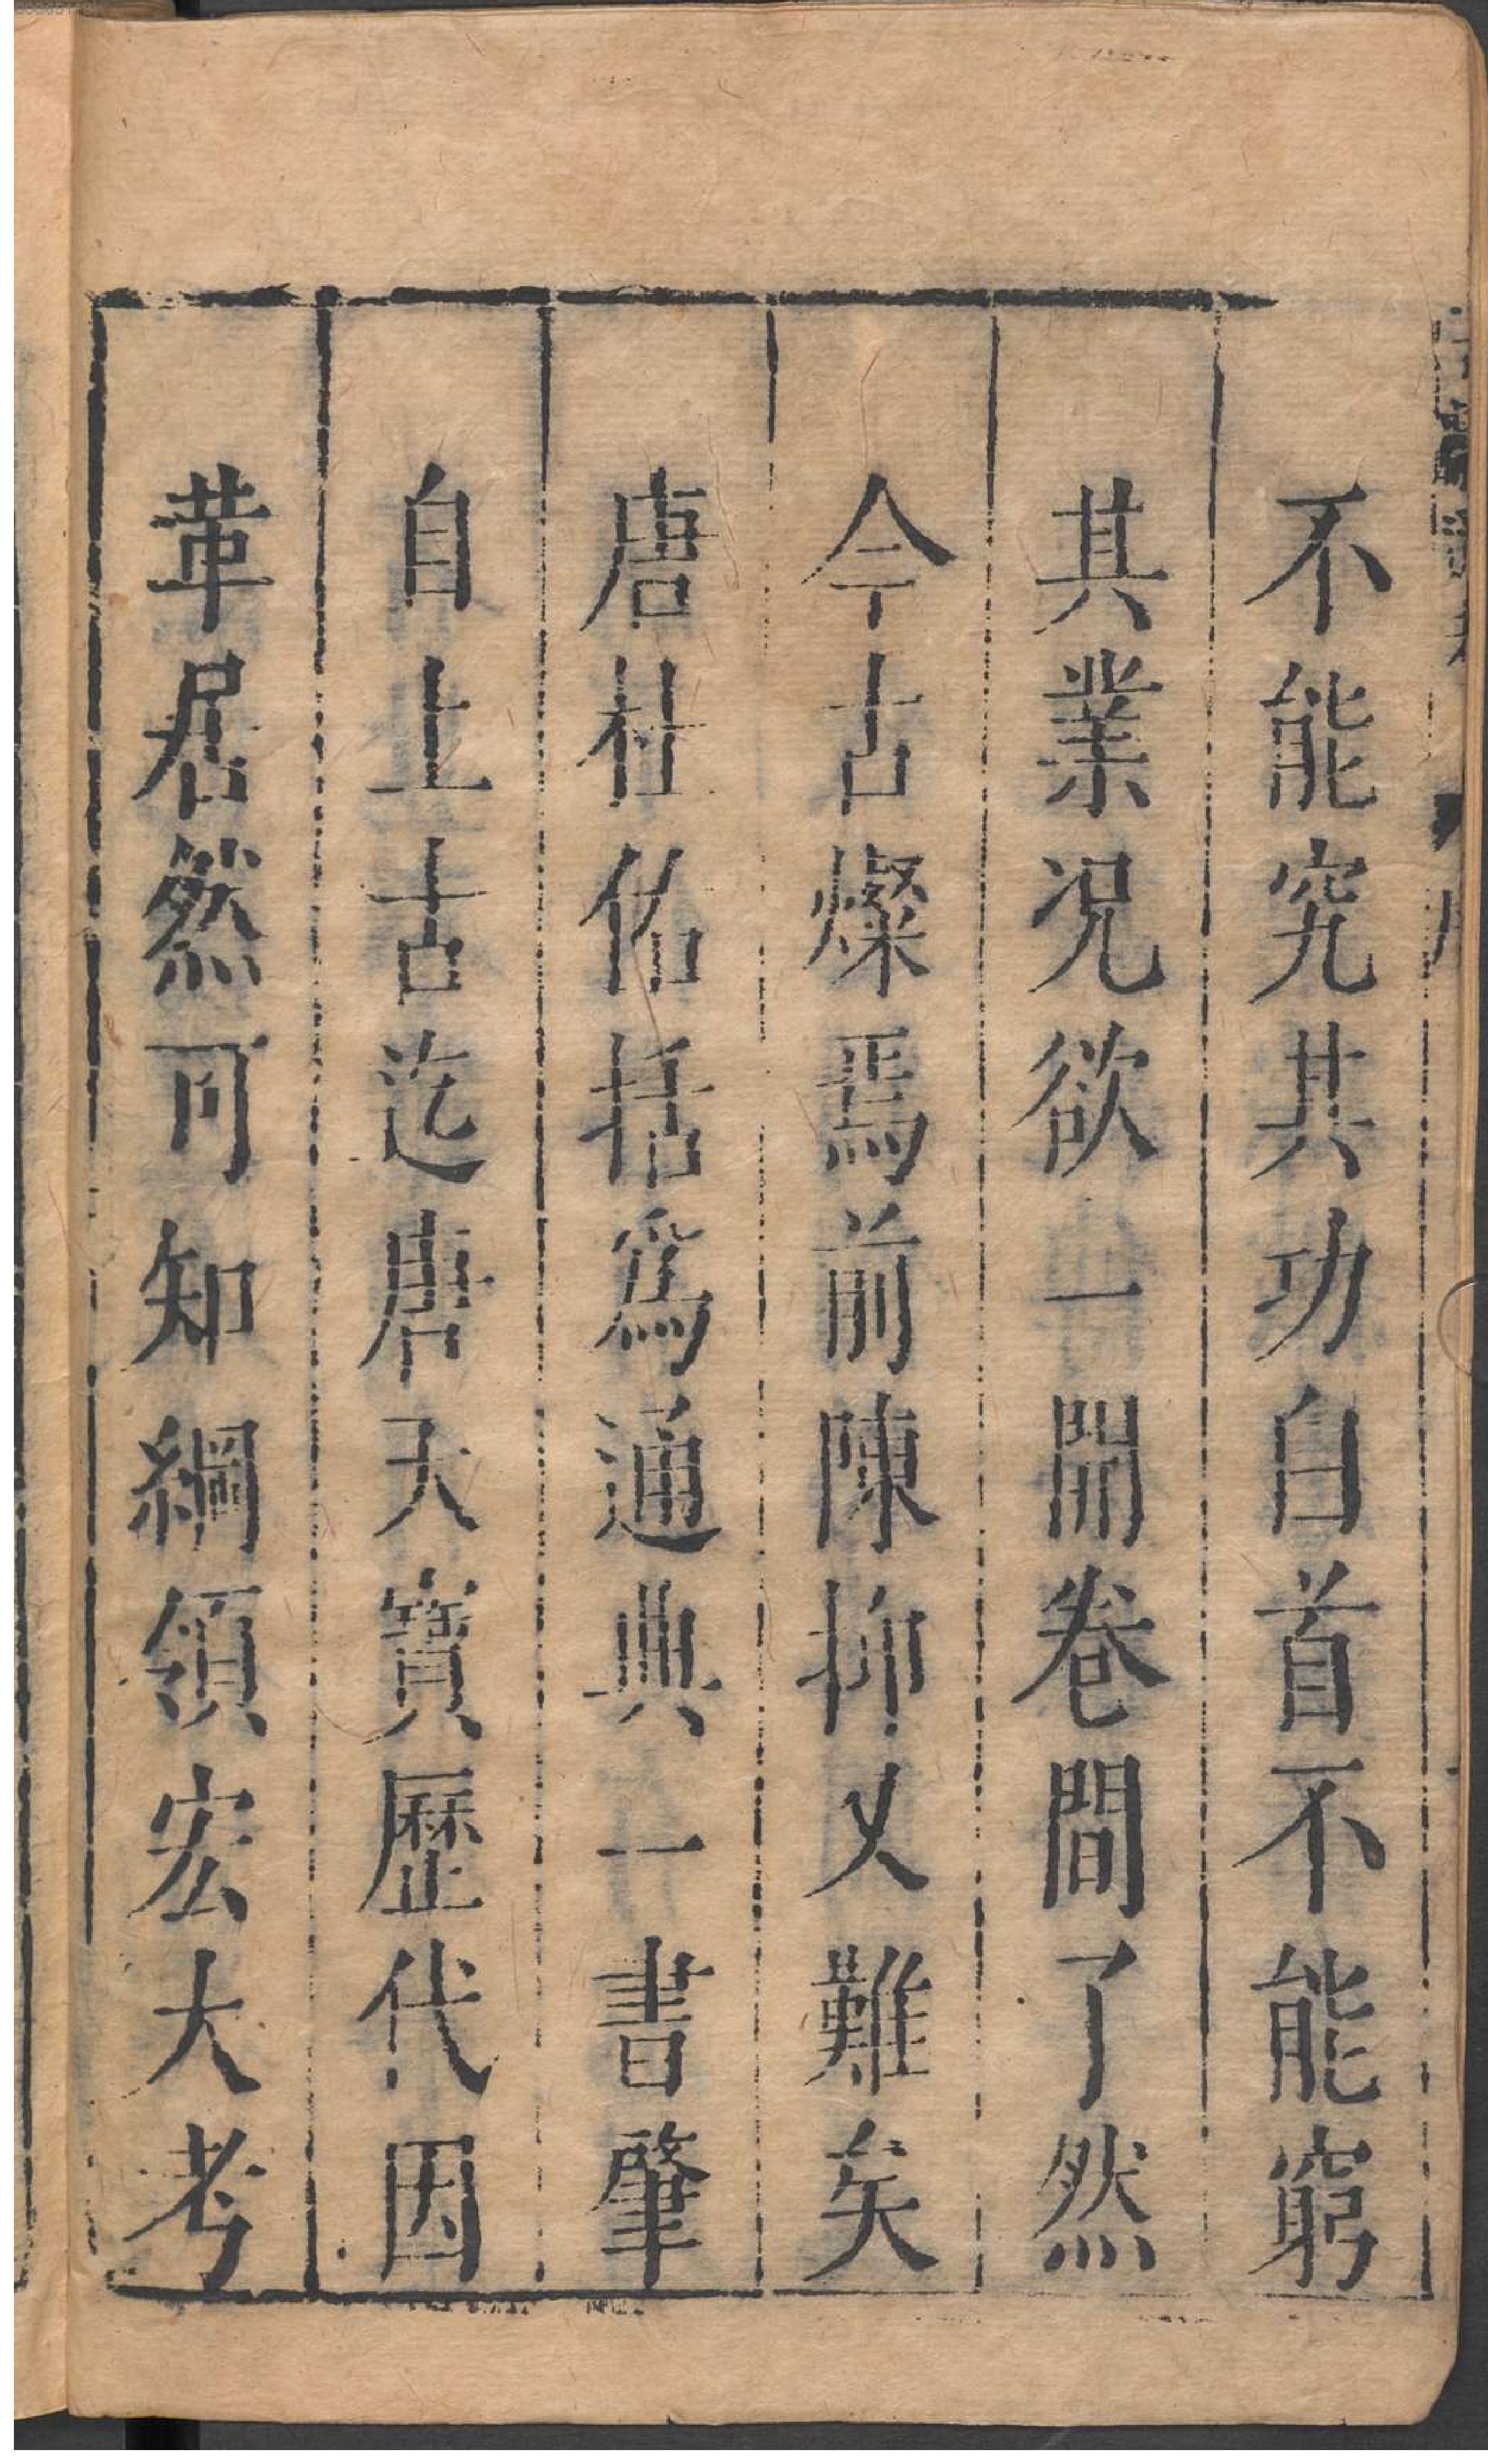 不能究其功白首不能窮
其業况欲一開卷間了然
今古燦焉前陳抑又難矣
唐杜佑括爲通典一書肇
自上古迄唐天寶歷代因
革居然可知綱領宏大考